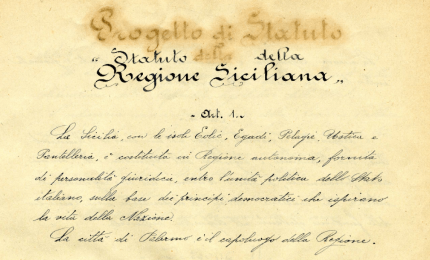 Progetto di Statuto
della
"Statuto della
Regione Siciliana"
- Art. 1. -
La Sicilia, con le isole Eolie, Egadi, Pelagie, Ustica e
Pantelleria, è costituita in Regione autonoma, fornita
di personalità giuridica, entro l'unità politica dello Stato
italiano, sulla base dei principi democratici che ispirano
la vita della Nazione.
La città di Palermo è il capoluogo della Regione.